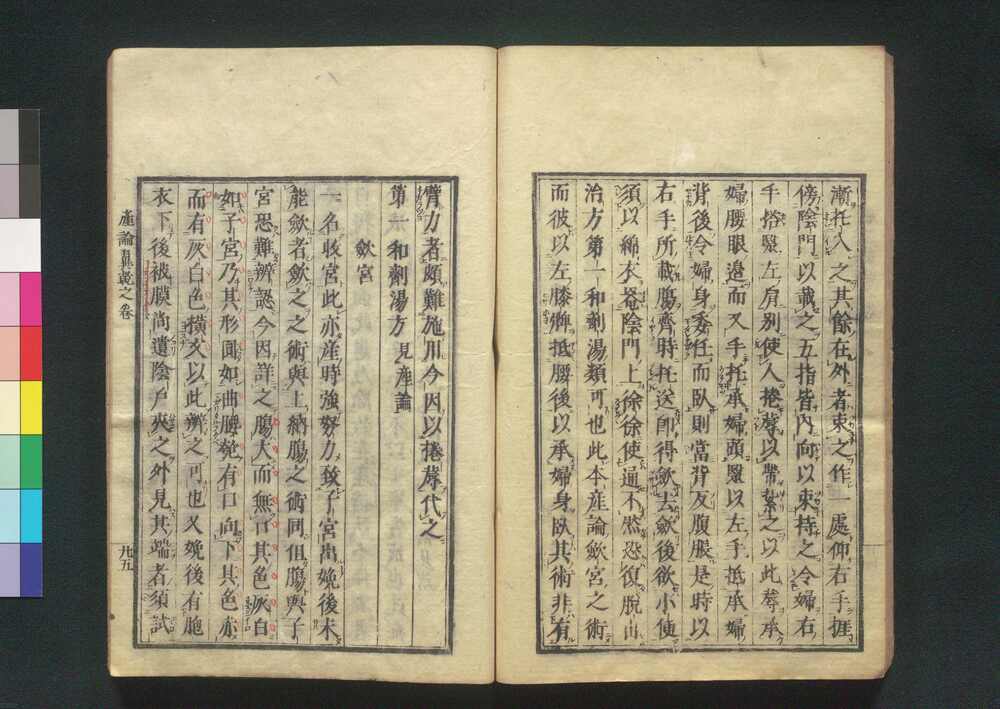 漸托入之其餘在外者束之作一處伸右手捱
傍陰門以載之五指皆內向以束持之令婦右
手搭緊左肩別使人捲蓐以帶縶之以此蓐承
婦腰眼邊而又手托承婦頭緊以左手抵承婦
背後令婦身委任而臥則當背反腹脹是時以
右手所載腸齊時托送卽得斂去斂後欲小便
須以綿衣菴陰門上徐徐使通不然恐復脫出
治方第一和劑湯類可也此本産論斂宮之術
而彼以左膝髀抵腰後以承婦身臥其術非有
臂力者頗難施用今因以捲蓐代之
第一 和劑湯方 見産論
斂宮
一名收宮此亦産時強努力致子宮出娩後未
能斂者斂之之術與上納腸之術同但腸與子
宮恐難辨認今因詳之腸大而無口其色灰白
如子宮乃其形圓如曲腰甆有口向下其色亦
而有灰白色橫文以此辨之可也又娩後有胞
衣下後被膜尚遺陰戶夾之外見其端者須試
産論翼 之卷
廿五